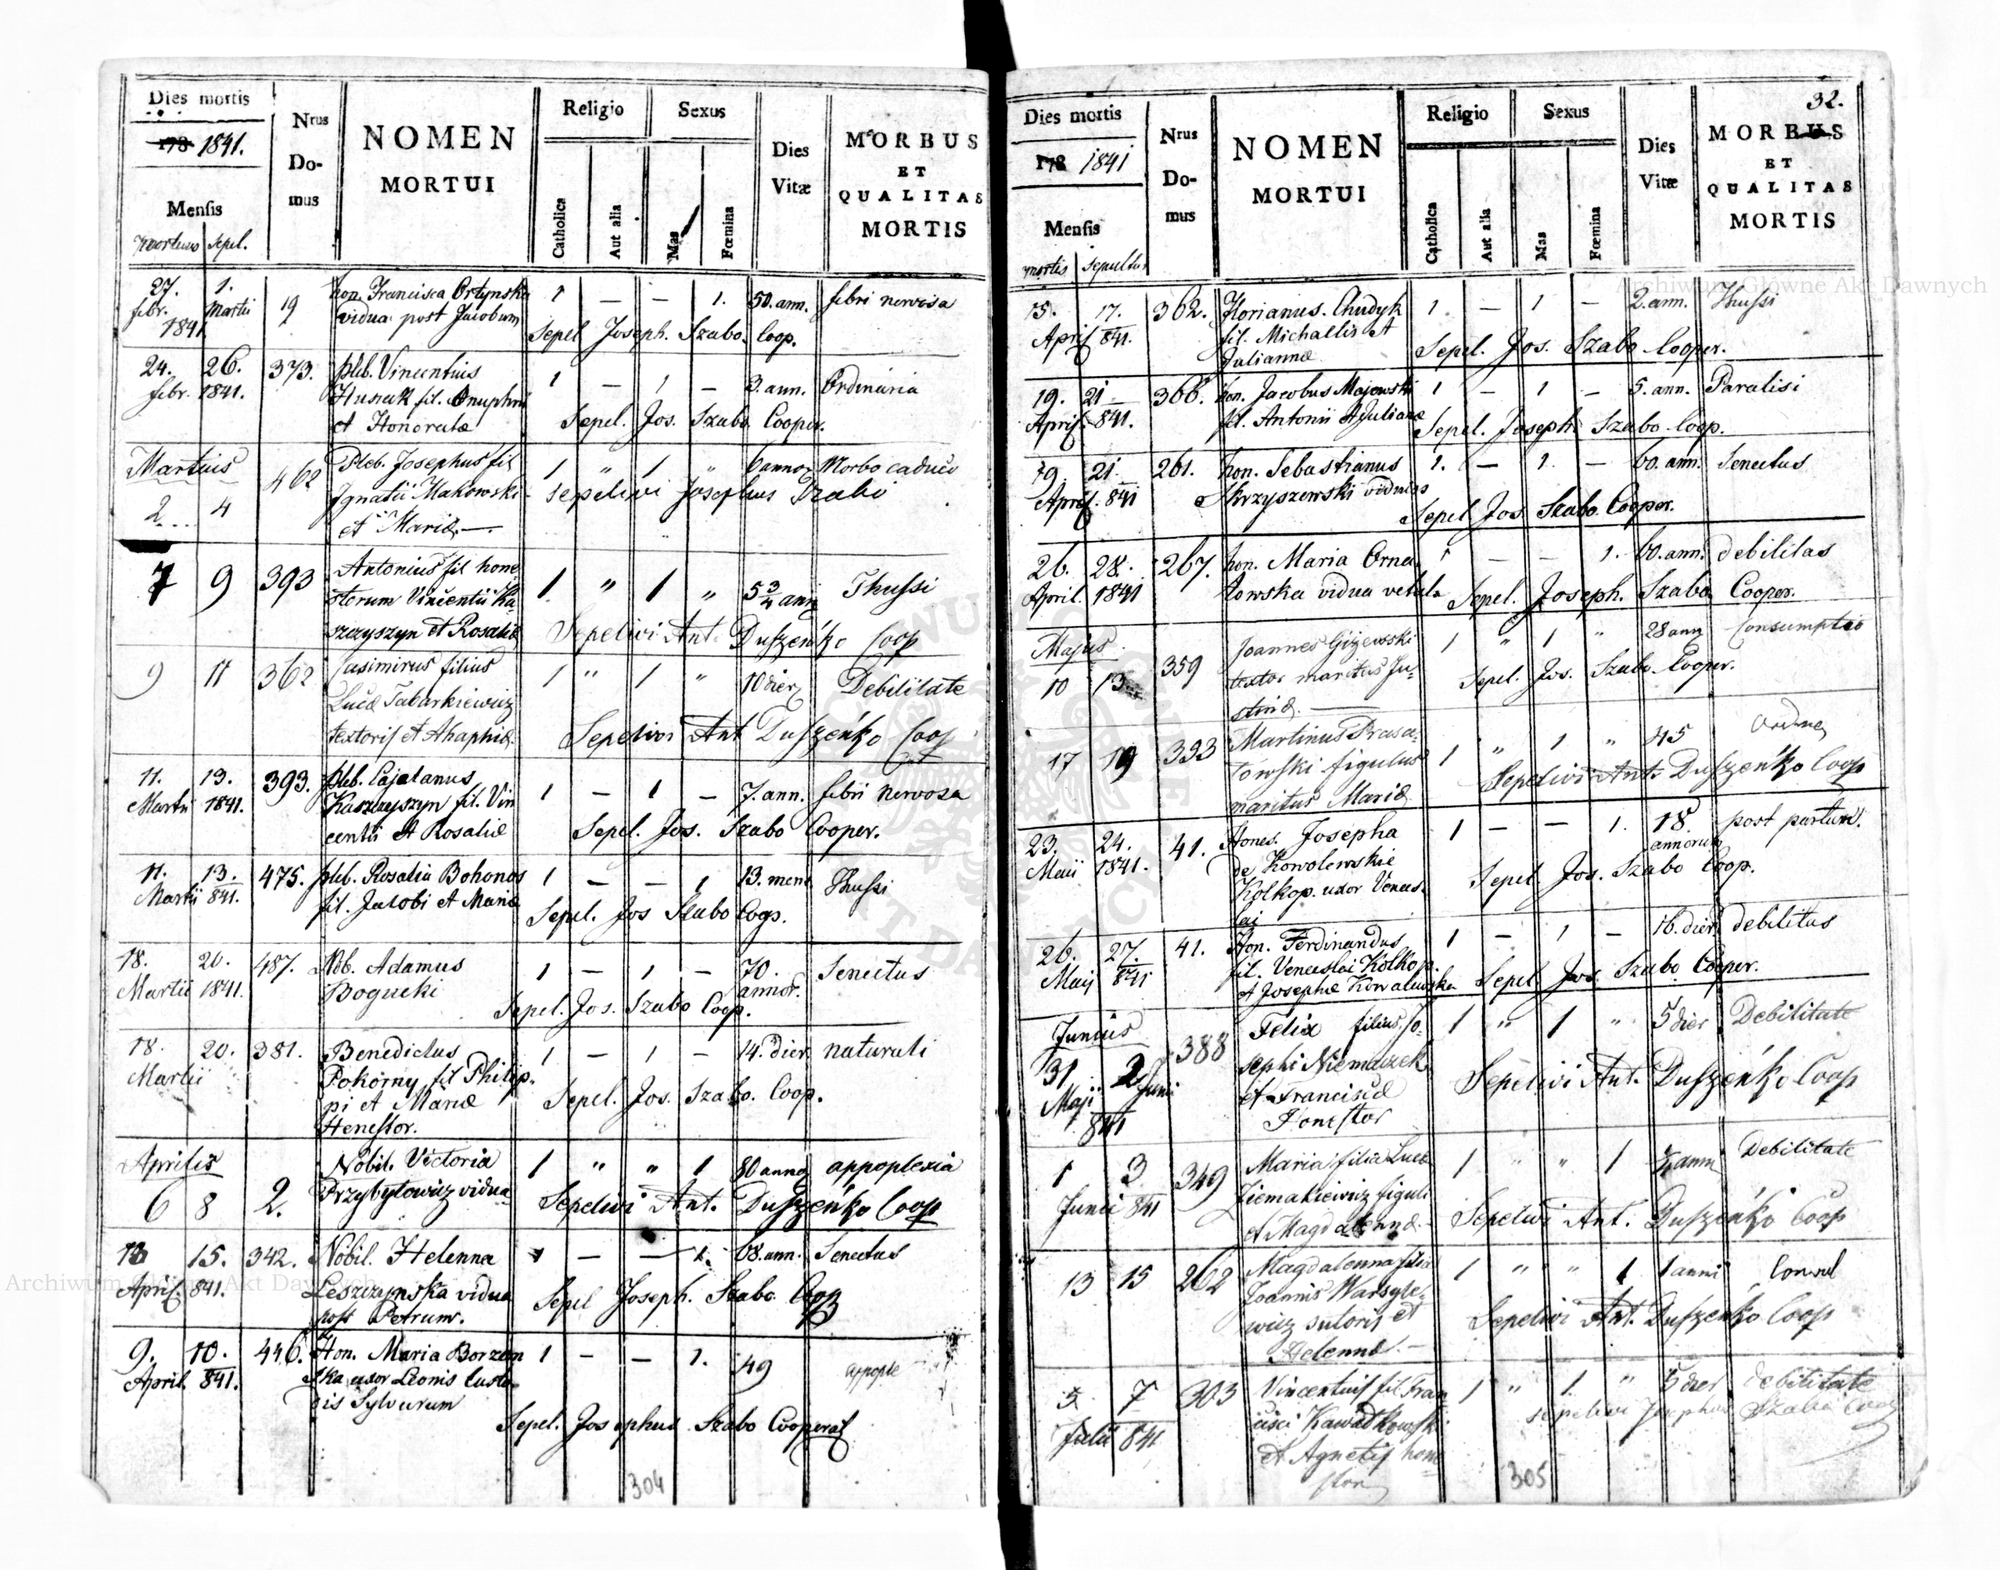 Dies mortis
178 1841.
Mensis
mortuus sepul.
Nrus
Do-
mus
NOMEN
MORTUI
Religio
Catholica
Aut alia
Sexus
Mas
Fœmina
Dies
Vitæ
MORBUS
ET
QUALITAS
MORTIS
27. 1. 19 hon. Francisca Ortynska 1 — — 1. 50. ann. febri nervosa
febr. Martii vidua post Jacobum
1841. Sepel. Joseph. Szabo. Coop.
24. 26. 373. pleb. Vincentius 1 — 1 — 3. ann. Ordinaria
febr. 1841. Husak fil. Onuphrii
et Honoratæ Sepel. Jos. Szabo Cooper.
Martius 462 Pleb. Josephus fil 1 " 1 " 6 annor Morbo caduco
2 4 Ignatii Makowski sepelivi Josephus Szabo
et Mariæ —
7 9 393 Antonius fil hone 1 " 1 " 5 3/4 ann Thussi
storum Vincentii Ka
szczyszyn et Rosaliæ Sepelivi Ant. Duszeńko Coop
9 11 362 Casimirus filius 1 " 1 " 10 dier Debilitate
Lucæ Tabarkiewicz
textoris et Ahaphiæ Sepelivi Ant Duszeńko Coop
11. 13. 393. pleb. Cajetanus 1 — 1 — 7. ann. febri nervosa
Martii 1841. Kaszczyszyn fil. Vin
centii et Rosaliæ Sepel. Jos. Szabo Cooper.
11. 13. 475. pleb. Rosalia Bohonos 1 — — 1 13. mens Thussi
Martii 841. fil. Jacobi et Mariæ Sepel. Jos Szabo Coop.
18. 20. 487. Nob. Adamus 1 — 1 — 70. Senectus
Martii 1841. Bogucki annor.
Sepel. Jos. Szabo Coop.
18. 20. 381. Benedictus 1 — 1 — 14. dier naturali
Martii Pokorny fil Philip-
pi et Mariæ Sepel. Jos. Szabo. Coop.
Henestor.
Aprilis Nobil. Victoria 1 " " 1 80 annor appoplexia
6 8 2. Przybyłowicz vidua Sepelivi Ant. Duszeńko Coop
13 15. 342. Nobil. Helenna 1 — — 1. 68. ann. Senectus
April. 841. Leszczynska vidua
post Petrum. Sepel Joseph. Szabo Coop
9. 10. 446. Hon. Maria Borzem 1 — — 1. 49 appople
April. 841. ska uxor Leonis custo
dis Sylvarum
Sepel. Josephus Szabo Cooperat
304
32.
Dies mortis
178 1841
Mensis
mortis sepultus
Nrus
Do-
mus
NOMEN
MORTUI
Religio
Catholica
Aut alia
Sexus
Mas
Fœmina
Dies
Vitæ
MORBUS
ET
QUALITAS
MORTIS
15. 17. 362. Florianus. Chudyk 1. — 1 — 2. ann. Thussi
April 841. fil. Michallis et
Juliannæ Sepel. Jos. Szabo Cooper.
19. 21 366. hon. Jacobus Majewski 1 — 1 — 5. ann. Paralisi
April. 841. fil. Antonii et Julianæ Sepel. Joseph Szabo Coop.
19. 21. 261. hon. Sebastianus 1. — 1. — 60. ann. Senectus
April. 841 Skrzyszewski viduus
Sepel Jos. Szabo. Cooper.
26. 28. 267. hon. Maria Orna 1 — — 1. 60. ann. debilitas
April. 1841 towska vidua vetula Sepel. Joseph. Szabo Cooper.
Majus 359 Joannes Giżewski 1 " 1 " 28 ann Consumptio
10 13 textor maritus Ju-
stinæ. — Sepel. Jos. Szabo. Cooper.
17 19 393 Martinus Prasa- 1 " 1 " 45
towski figulus
maritus Mariæ Sepelivi Ant. Duszeńko Coop
23. 24. 41. Hones. Josepha 1 — — 1. 18. post partum.
Maii 1841. de Kowolewskie annorum
Kolkop. uxor Vences- Sepel Jos. Szabo Coop.
lai
26. 27. 41. Hon. Ferdinandus 1 — 1 — 16. dier debilitus
Maij 841 fil. Venceslai Kolkop.
et Josephæ Kowalewska Sepel Jos. Szabo Cooper.
Junius 388 Felix filius Jo- 1 " 1 " 5 dier Debilitate
31 2 sephi Niemaczek
Maji Junii et Franciscæ Sepelivi Ant. Duszeńko Coop
841 Honestor
1 3 349 Mariia filia Lucæ 1 " " 1 ann Debilitate
Junii 841 Ziemakiewicz figuli
et Magdalennæ. Sepelivi Ant. Duszeńko Coop
13 15 262 Magdalenna filia 1 " " 1 1 anni Convul
Joannis Warsyle-
wicz sutoris et Sepelivi Ant. Duszeńko Coop
Helennæ. —
5 7 303 Vincentius fil Fran 1 " 1. " 5 dier debilitate
Julii 841 cisci Kawadkowski sepelivi Josephus Szabo Coop
et Agnetis hone
stor
305
Archiwum Główne Akt Dawnych
Archiwum Główne Akt Dawnych